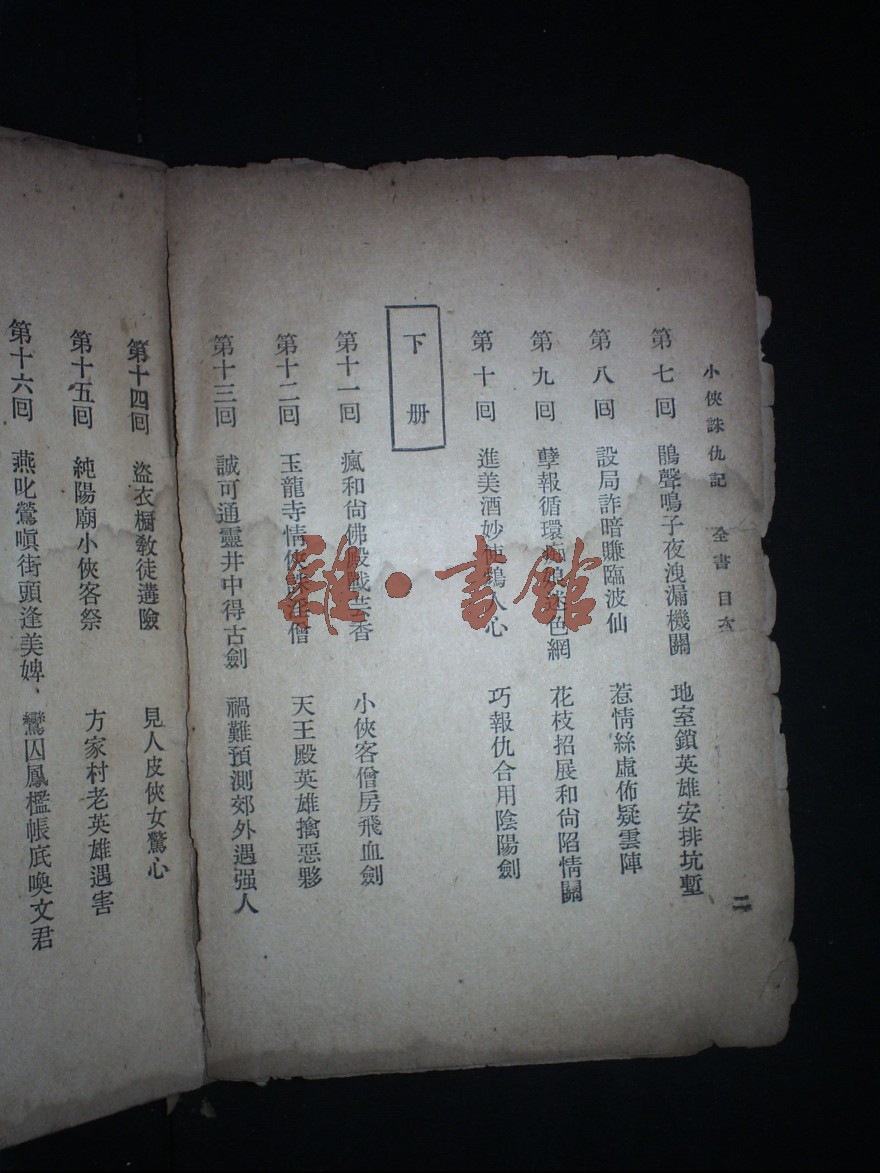 小俠誅仇記　全書　目次
二
第七回　鵑聲鳴子夜洩漏機關　地室鎖英雄安排坑塹
第八回　設局詐暗賺臨波仙　惹情絲虛佈疑雲陣
第九回　孽報循環痴娘迷色網　花枝招展和尙陷情關
第十回　進美酒妙　人心　巧報仇合用陰陽劍
下册
第十一回　瘋和尙佛殿戰芸香　小俠客僧房飛血劍
第十二回　玉龍寺情俠誅淫僧　天王殿英雄擒惡夥
第十三回　誠可通靈井中得古劍　禍難預測郊外遇强人
第十四回　盜衣橱敎徒遘險　見人皮俠女驚心
第十五回　純陽廟小俠客祭　方家村老英雄遇害
第十六回　燕叱鶯嗔街頭逢美婢、　鸞囚鳳檻帳底喚文君
雜·書館